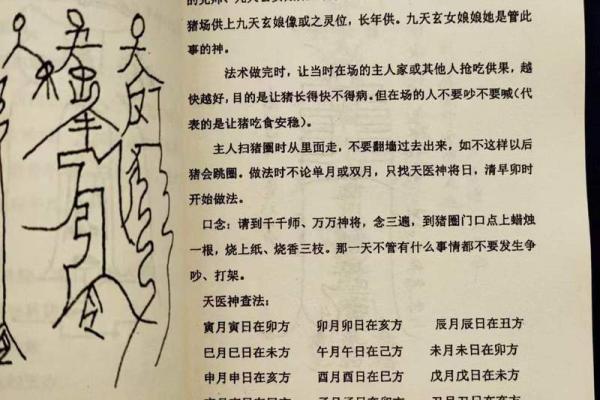 猪场供上九天玄娘像或之灵位，长年供。九天玄女娘娘她是管此
事的神。
法术做完时，让当时在场的主人家或其他人抢吃供果，越
快越好，目的是让猪长得快不得病。但在场的人不要吵不要喊（代
表的是让猪吃食安稳）。
主人扫猪圈时从里面走，不要翻墙过去出来，如不这样以后
猪会跳圈。做法时不论单月或双月，只找天医神将日，清早卯时
开始做法。
口念：请到千千师、万万神将，念三遍，到猪圈门口点上蜡烛
一根，烧上纸、烧香三枝。那一天不管有什么事情都不要发生争
吵、打架。
天医神查法：
寅月寅日在卯方 卯月卯日在亥方 辰月辰日在丑方
巳月巳日在未方 午月午日在己方 未月未日在卯方
申月申日在亥方 酉月酉日在巳方 戊月戊日在未方